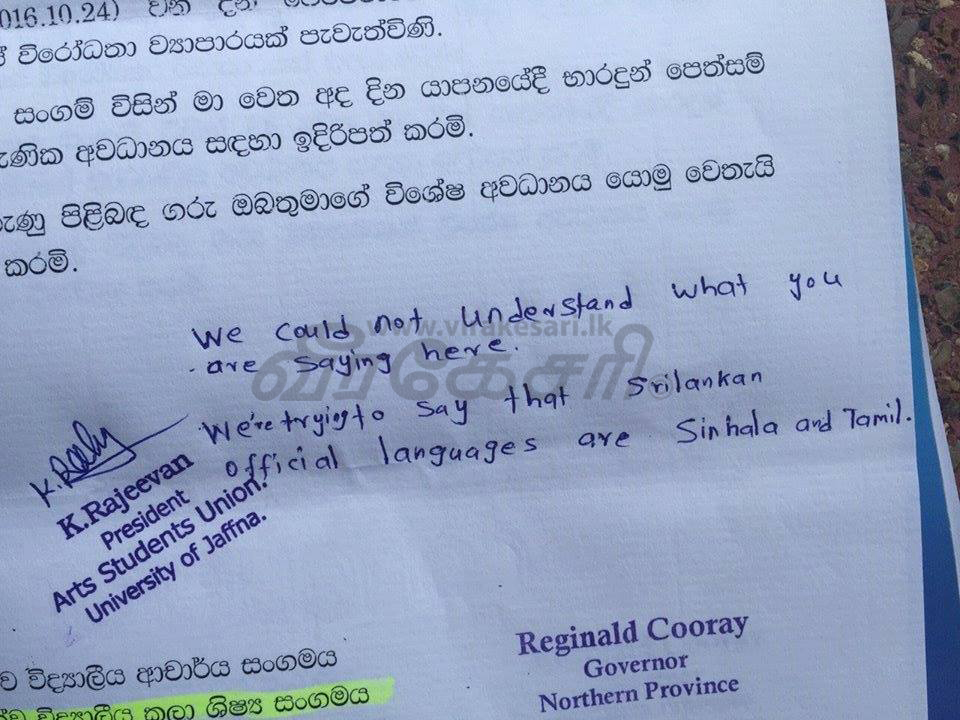 016.10.24) වන දින
විරෝධතා ව්‍යාපාරයක් පැවැත්විණි.
සංගම් විසින් මා වෙත අද දින යාපනයේදී භාරදුන් පෙත්සම්
අවධානය සඳහා ඉදිරිපත් කරමි.
පිළිබඳ ගරු ඔබතුමාගේ විශේෂ අවධානය යොමු වෙතැයි
කරමි.
We could not understand what you
are saying here.
www.virakesari.lk
வீரகேசரி
We're trying to say that Srilankan
official languages are Sinhala and Tamil.
K.Rajeevan
President
Arts Students Union.
University of Jaffna.
Reginald Cooray
Governor
Northern Province
විද්‍යාලීය ආචාර්ය සංගමය
විද්‍යාලීය කලා ශිෂ්‍ය සංගමය